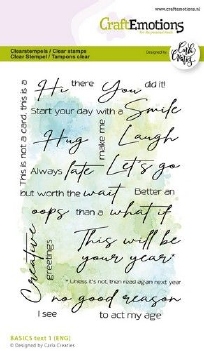 www.craftemotions.nl
CraftEmotions
Clearstempels / Clear stamps
Clear Stempel / Tampons clear
Designed by
Carla Creaties
This is not a card, this is a
Hi there You did it!
Start your day with a Smile
Hug make me Laugh
Always late Let's go
but worth the wait Better an
oops than a what if
Creative greetings
This will be
your year*
* Unless it's not, then read again next year
no good reason
I see to act my age
BASICS text 1 (ENG)
© Designed by Carla Creaties